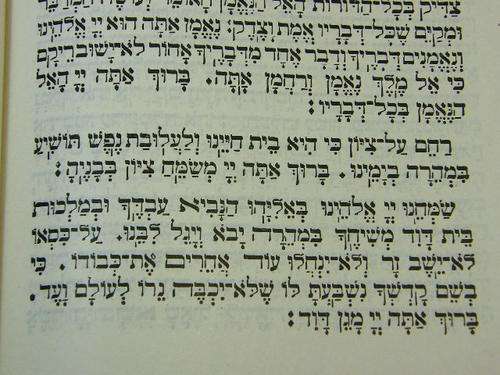 צַדִּיק בְּכָל־הַדּוֹרוֹת הָאֵל הַנֶּאֱמָן הָאוֹמֵר וְעוֹשֶׂה הַמְדַבֵּר
וּמְקַיֵּם שֶׁכָּל־דְּבָרָיו אֱמֶת וָצֶדֶק: נֶאֱמָן אַתָּה הוּא יְיָ אֱלֹהֵינוּ
וְנֶאֱמָנִים דְּבָרֶיךָ וְדָבָר אֶחָד מִדְּבָרֶיךָ אָחוֹר לֹא־יָשׁוּב רֵיקָם
כִּי אֵל מֶלֶךְ נֶאֱמָן וְרַחֲמָן אָתָּה. בָּרוּךְ אַתָּה יְיָ הָאֵל
הַנֶּאֱמָן בְּכָל־דְּבָרָיו:
רַחֵם עַל־צִיּוֹן כִּי הִיא בֵּית חַיֵּינוּ וְלַעֲלוּבַת נֶפֶשׁ תּוֹשִׁיעַ
בִּמְהֵרָה בְיָמֵינוּ. בָּרוּךְ אַתָּה יְיָ מְשַׂמֵּחַ צִיּוֹן בְּבָנֶיהָ:
שַׂמְּחֵנוּ יְיָ אֱלֹהֵינוּ בְּאֵלִיָּהוּ הַנָּבִיא עַבְדֶּךָ וּבְמַלְכוּת
בֵּית דָּוִד מְשִׁיחֶךָ בִּמְהֵרָה יָבֹא וְיָגֵל לִבֵּנוּ. עַל־כִּסְאוֹ
לֹא־יֵשֵׁב זָר וְלֹא־יִנְחֲלוּ עוֹד אֲחֵרִים אֶת־כְּבוֹדוֹ. כִּי
בְשֵׁם קָדְשְׁךָ נִשְׁבַּעְתָּ לּוֹ שֶׁלֹּא־יִכְבֶּה נֵרוֹ לְעוֹלָם וָעֶד.
בָּרוּךְ אַתָּה יְיָ מָגֵן דָּוִד: